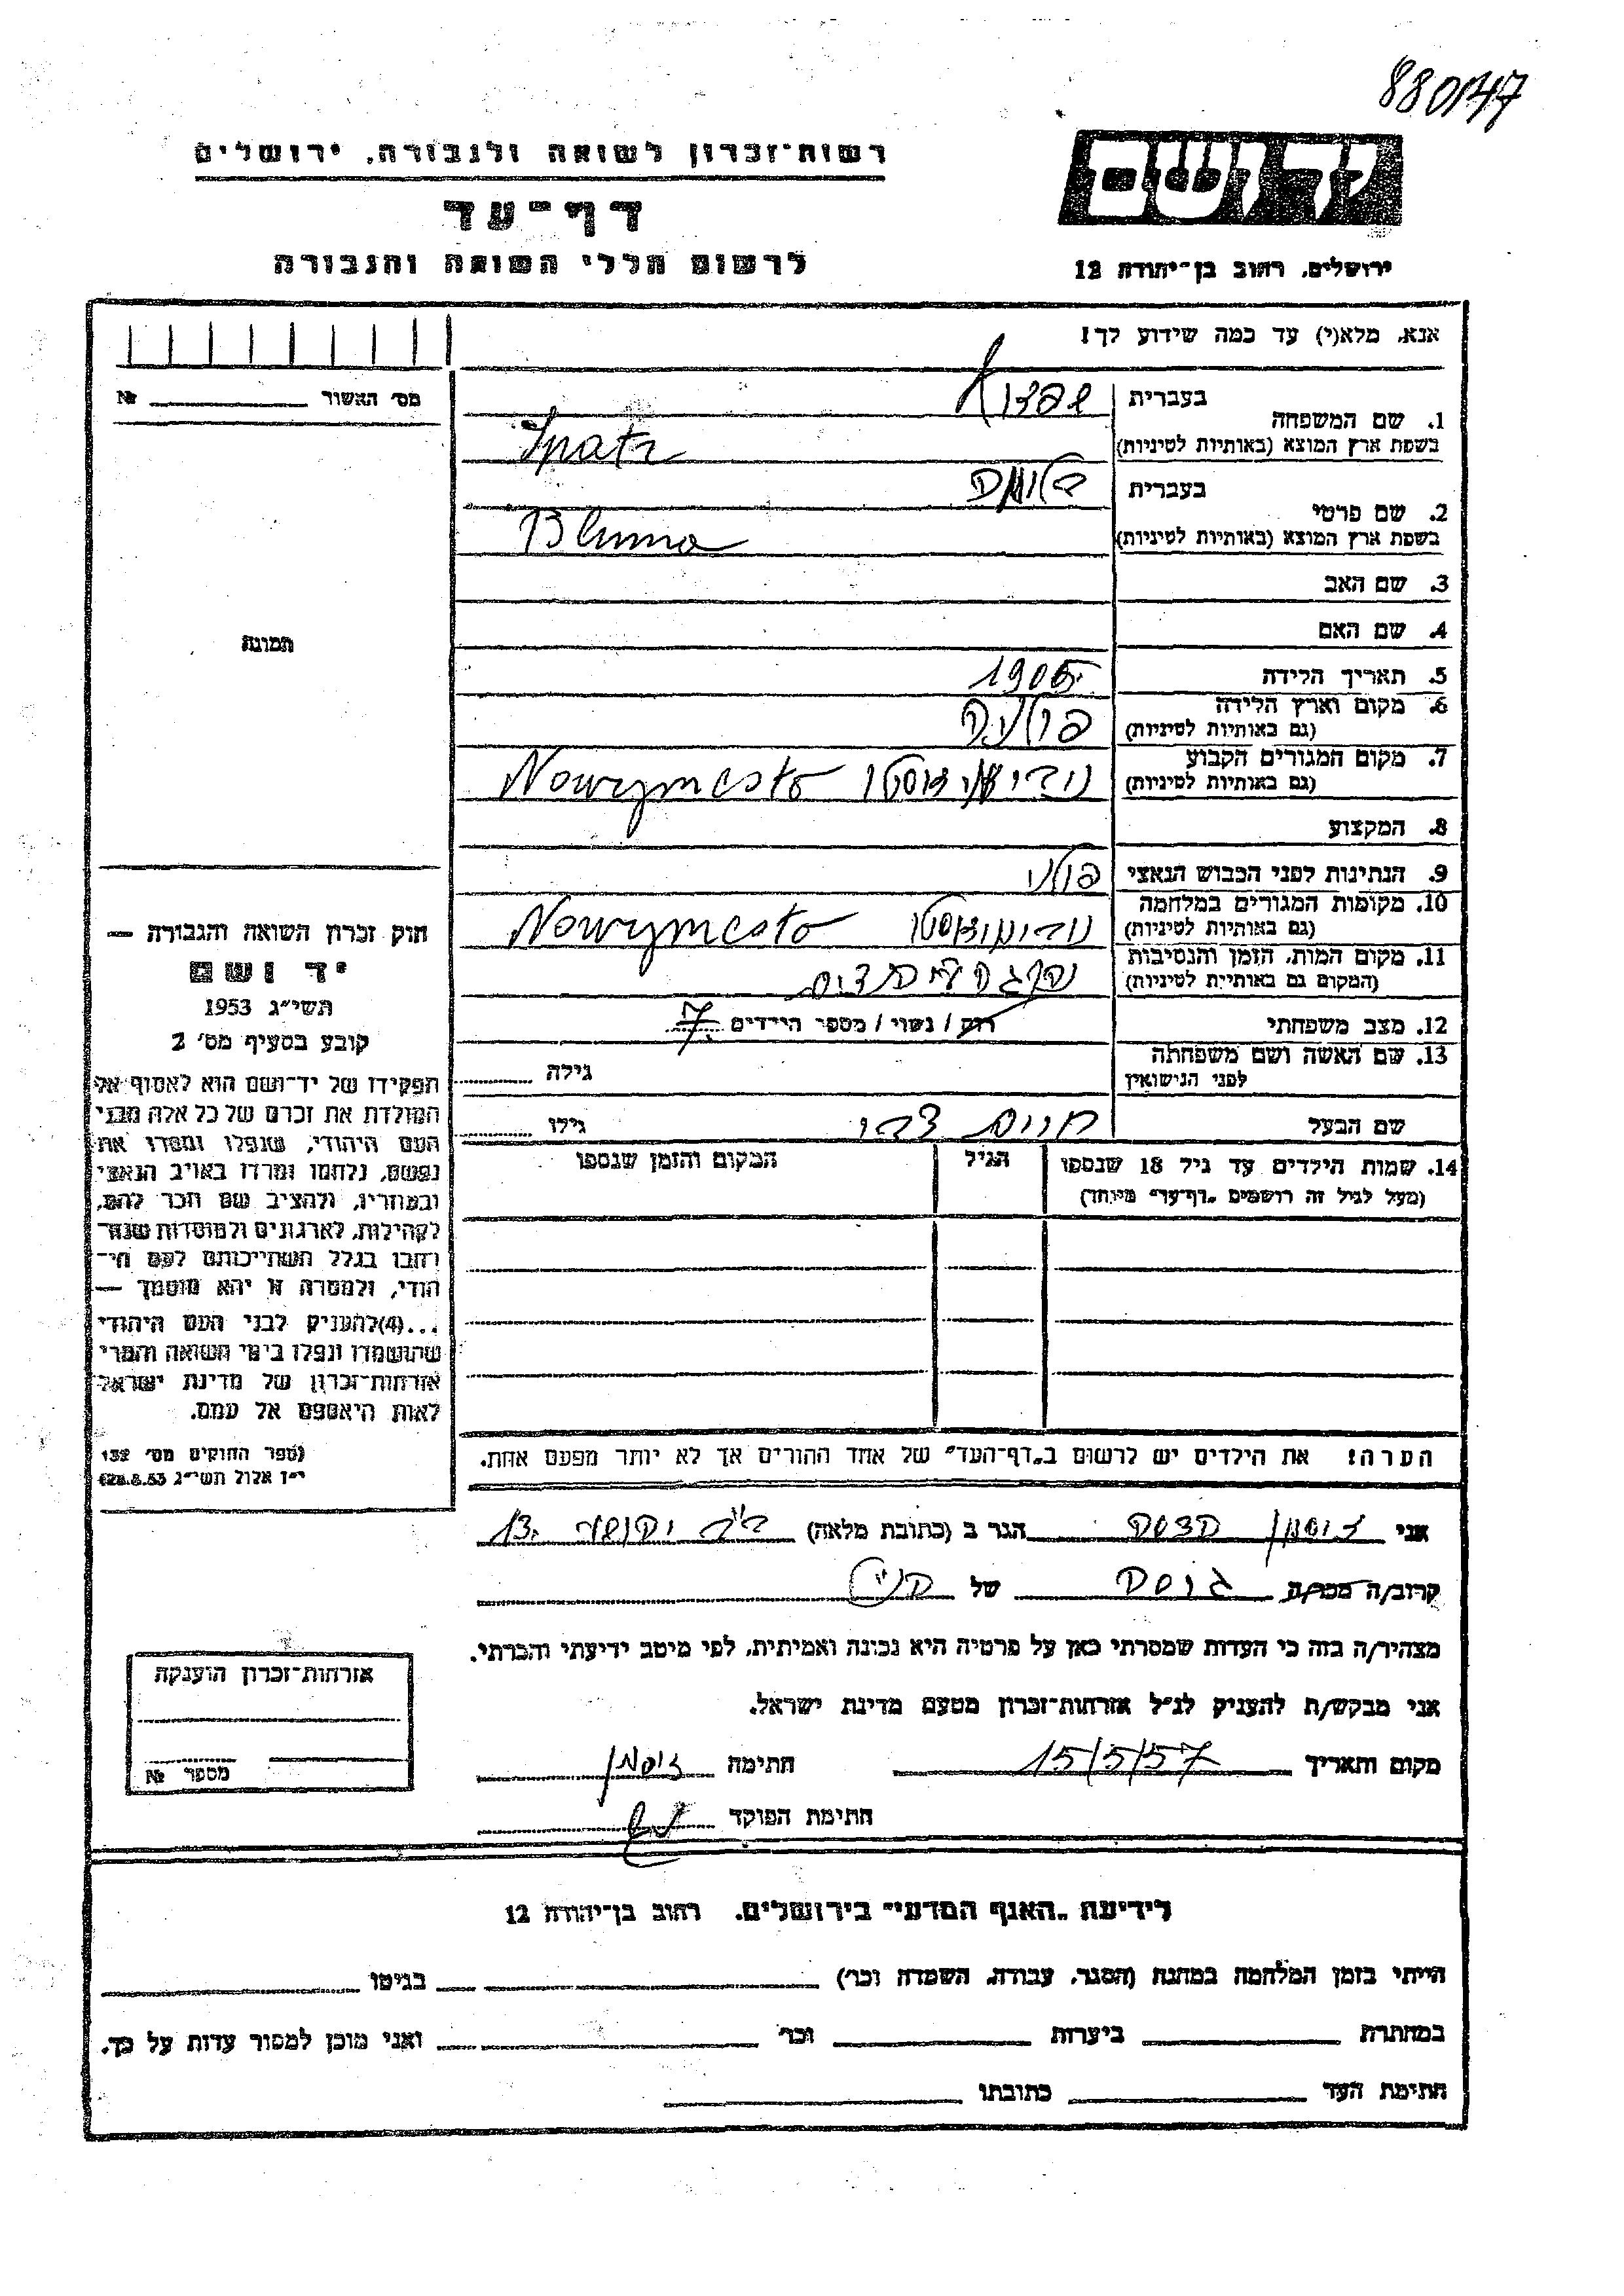 880147
רשות־זכרון לשואה ולגבורה, ירושלים
דף־עד
לרשום חללי השואה והגבורה
יד ושם
ירושלים, רחוב בן־יהודה 12
אנא, מלא(י) עד כמה שידוע לך!
מס׳ האשור № 
1. שם המשפחה
בעברית
בשפת ארץ המוצא (באותיות לטיניות) Spatz
2. שם פרטי
בעברית בלומה
בשפת ארץ המוצא (באותיות לטיניות) Bluma
3. שם האב
4. שם האם
תמונה
5. תאריך הלידה 1905
6. מקום וארץ הלידה
(גם באותיות לטיניות) פולניה
7. מקום המגורים הקבוע
(גם באותיות לטיניות) Nowymesto
8. המקצוע
9. הנתינות לפני הכבוש הנאצי פולני
10. מקומות המגורים במלחמה
(גם באותיות לטיניות) Nowymesto
11. מקום המות, הזמן והנסיבות
(המקום גם באותיות לטיניות)
12. מצב משפחתי רוק / נשוי / מספר הילדים 7
13. שם האשה ושם משפחתה
לפני הנישואין גילה
שם הבעל חיים צבי גילו
14. שמות הילדים עד גיל 18 שנספו הגיל המקום והזמן שנספו
(מעל לגיל זה רושמים „דף־עד״ מיוחד)
הערה: את הילדים יש לרשום ב„דף־העד״ של אחד ההורים אך לא יותר מפעם אחת.
חוק זכרון השואה והגבורה —
יד ושם
תשי״ג 1953
קובע בסעיף מס׳ 2
תפקידו של יד־ושם הוא לאסוף אל
המולדת את זכרם של כל אלה מבני
העם היהודי, שנפלו ומסרו את
נפשם, נלחמו ומרדו באויב הנאצי
ובעוזריו, ולהציב שם וזכר להם,
לקהילות, לארגונים ולמוסדות שנח־
רבו בגלל השתייכותם לעם הי־
הודי, ולמטרה זו יהא מוסמך —
...(4)להעניק לבני העם היהודי
שהושמדו ונפלו בימי השואה והמרי
אזרחות־זכרון של מדינת ישראל
לאות היאספם אל עמם.
(ספר החוקים מס׳ 132
י״ז אלול תשי״ג 28.8.53)
אני הדסה הגר ב (כתובת מלאה) 13
קרוב/ה מכר/ה גיסה של הנ״ל
מצהיר/ה בזה כי העדות שמסרתי כאן על פרטיה היא נכונה ואמיתית, לפי מיטב ידיעתי והכרתי.
אני מבקש/ת להעניק לנ״ל אזרחות־זכרון מטעם מדינת ישראל.
מקום ותאריך 15/5/57 חתימה
חתימת הפוקד
אזרחות־זכרון הוענקה
מספר №
לידיעת „האגף המדעי״ בירושלים, רחוב בן־יהודה 12
הייתי בזמן המלחמה במחנה (הסגר, עבודה, השמדה וכו׳) בגיטו
במחתרת ביערות וכו׳ ואני מוכן למסור עדות על כך.
חתימת העד כתובתו